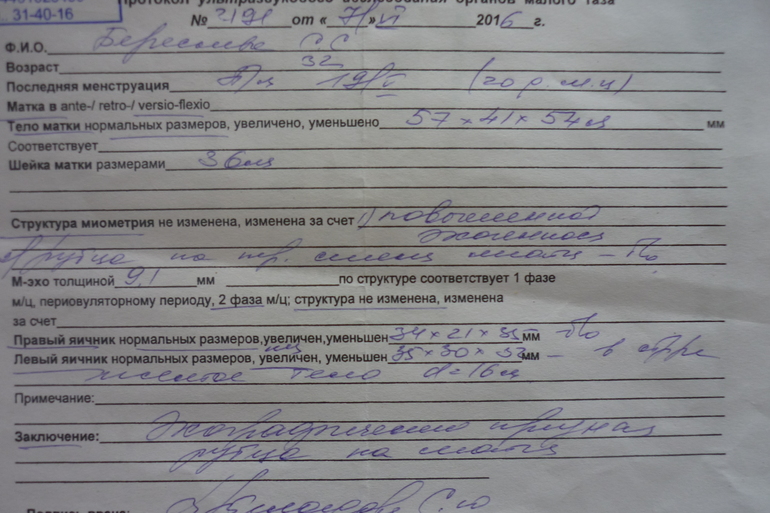 31-40-16
Протокол ультразвукового исследования органов малого таза
№ 2191 от « 7 » VI 2016 г.
Ф.И.О. С.С.
Возраст 32
Последняя менструация 19/V (20 д. м.ц)
Матка в ante-/ retro-/ versio-flexio
Тело матки нормальных размеров, увеличено, уменьшено 57 × 41 × 54 мм
Соответствует
Шейка матки размерами 36мм
Структура миометрия не изменена, изменена за счет 1) повышенной
эхогенности
рубца на пер. стенке матки -
М-эхо толщиной 9,1 мм по структуре соответствует 1 фазе
м/ц, периовуляторному периоду, 2 фаза м/ц; структура не изменена, изменена
за счет
Правый яичник нормальных размеров,увеличен,уменьшен 34 × 21 × 35 мм
Левый яичник нормальных размеров, увеличен, уменьшен 35 × 30 × 33 мм - в стр-ре
желтое тело d = 16мм
Примечание:
Заключение: Эхографические признаки
рубца на матке
Подпись врача: С.Ю